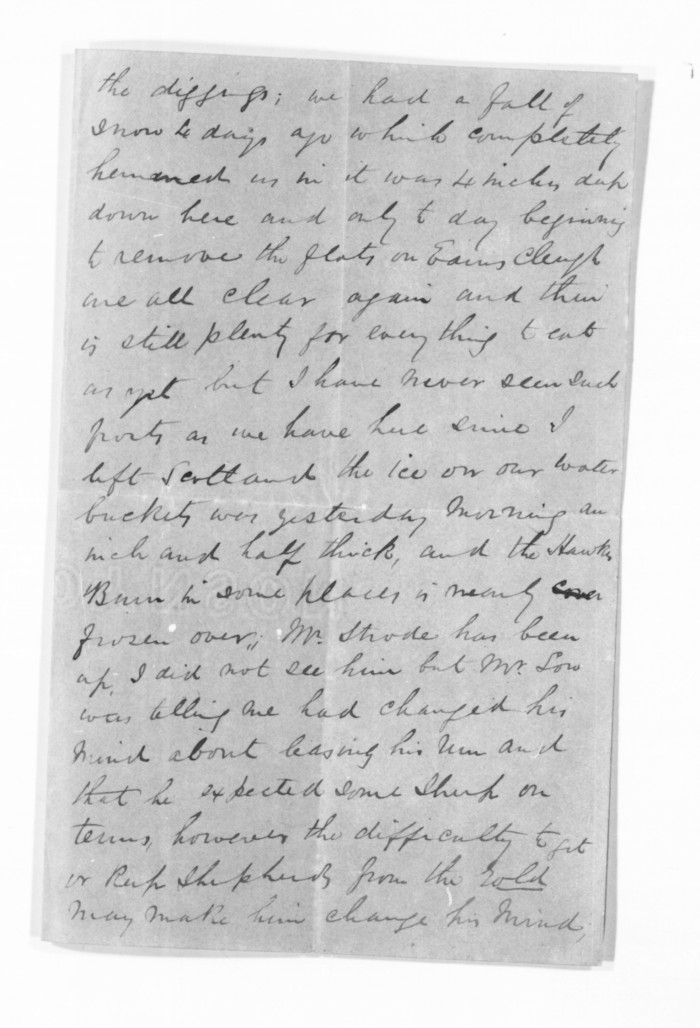 the diggings; we had a fall of
snow 4 days ago which completely
hemmed us in it was 4 inches deep
down here and only to day beginning
to remove the flats on Earnscleugh
are all clear again and their
is still plenty for everything to eat
as yet but I have never seen such
frosts as we have here since I
left Scotland the ice on our water
buckets was yesterday morning an
inch and half thick, and the Hawks
Burn in some places is nearly
frosen over; Mr. Strode has been
up, I did not see him but Mr. Low
was telling me had changed his
mind about leasing his run and
that he expected some sheep on
terms, however the difficulty to get
or keep shepherds from the Gold
may make him change his mind,